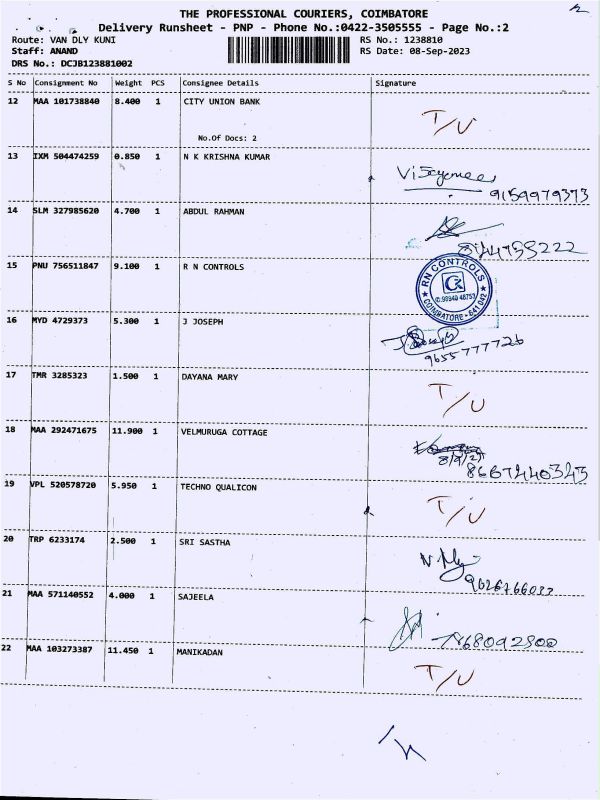 THE PROFESSIONAL COURIERS, COIMBATORE
Delivery Runsheet - PNP - Phone No.:0422-3505555 - Page No.:2
Route: VAN DLY KUNI RS No.: 1238810
Staff: ANAND RS Date: 08-Sep-2023
DRS No.: DCJB123881002
S No Consignment No Weight PCS Consignee Details Signature
12 MAA 101738840 8.400 1 CITY UNION BANK T/U
No.Of Docs: 2
13 IXM 504474259 0.850 1 N K KRISHNA KUMAR
9159979373
14 SLM 327985620 4.700 1 ABDUL RAHMAN
15 PNU 756511847 9.100 1 R N CONTROLS
RN CONTROLS
COIMBATORE - 641 042
16 MYD 4729373 5.300 1 J JOSEPH
9655777726
17 TMR 3285323 1.500 1 DAYANA MARY T/U
18 MAA 292471675 11.900 1 VELMURUGA COTTAGE
8667440343
19 VPL 520578720 5.950 1 TECHNO QUALICON T/U
20 TRP 6233174 2.500 1 SRI SASTHA
21 MAA 571140552 4.000 1 SAJEELA
22 MAA 103273387 11.450 1 MANIKADAN T/U